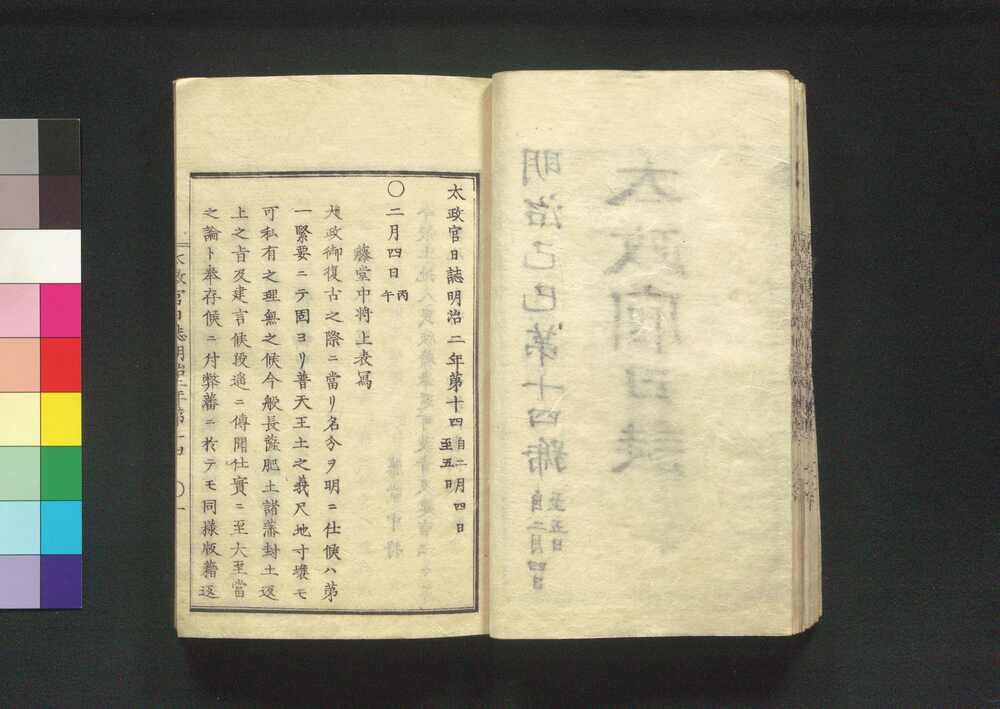 太政官日誌明治二年第十四 自二月四日
至五日
〇二月四日 丙午
藤堂中将上表寫
大政御復古之際ニ當リ名分ヲ明ニ仕候ハ第
一緊要ニテ固ヨリ普天王土之義尺地寸壤モ
可私有之理無之候今般長薩肥土諸藩封土返
上之旨及建言候段逓ニ傳聞仕實ニ至大至當
之論ト奉存候ニ付弊藩ニ於テモ同樣版籍返
太政官日誌明治二年第十四 〇一